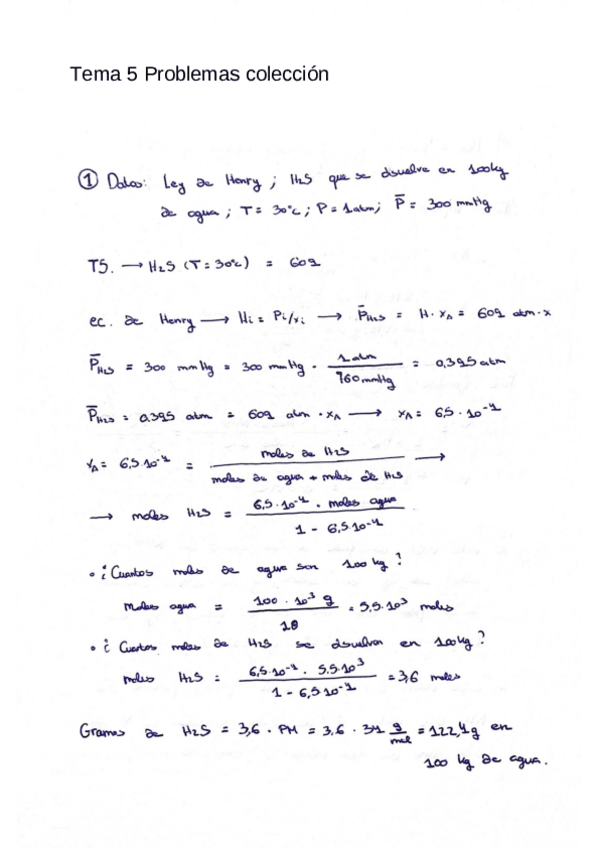 Tema 5 Problemas colección
① Datos: Ley de Henry ; H2S que se disuelve en 100kg
de agua ; T = 30°C ; P = 1 atm ; P̅ = 300 mmHg
T5. → H2S (T = 30°C) = 609
ec. de Henry → Hi = Pi/xi → P̅H2S = H · xA = 609 atm · x
P̅H2S = 300 mmHg = 300 mmHg · 1 atm / 760 mmHg = 0,395 atm
P̅H2S = 0,395 atm = 609 atm · xA → xA = 6,5 · 10⁻⁴
xA = 6,5·10⁻⁴ = moles de H2S / moles de agua + moles de H2S →
→ moles H2S = 6,5·10⁻⁴ · moles agua / 1 - 6,5·10⁻⁴
• ¿Cuantos moles de agua son 100 kg?
Moles agua = 100 · 10³ g / 18 = 5,5·10³ moles
• ¿Cuantos moles de H2S se disuelven en 100kg?
moles H2S = 6,5·10⁻⁴ · 5,5·10³ / 1 - 6,5·10⁻⁴ = 3,6 moles
Gramos de H2S = 3,6 · PM = 3,6 · 34 g/mol = 122,4g en
100 kg de agua.